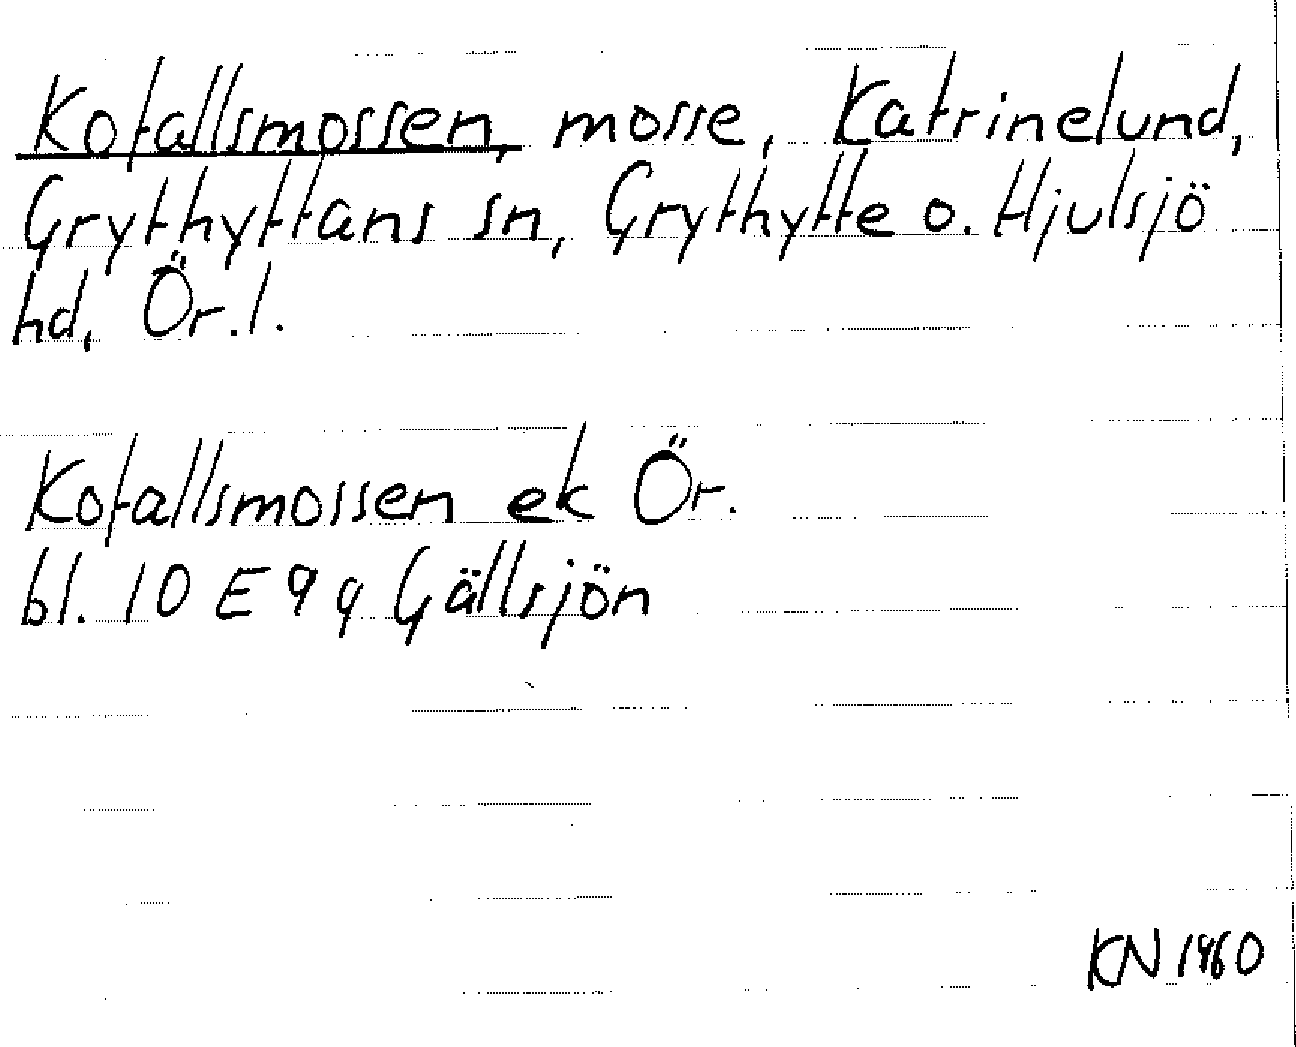 Kofallsmossen, mosse, Katrinelund,
Grythyttans sn, Grythytte o. Hjulsjö
hd, Ör. l.
Kofallsmossen ek Ör.
bl. 10 E 9 g Gällsjön
KN 1960